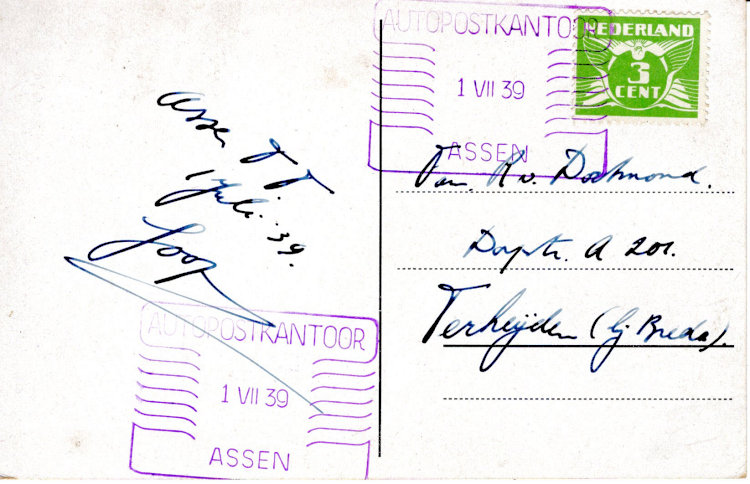 AUTOPOSTKANTOOR
1 VII 39
ASSEN
NEDERLAND
3
CENT
Assen TT
1 Juli '39.
Joop
Fam. K v. Dortmond.
Dorpstr. A 201.
Terheijden (bij Breda).
AUTOPOSTKANTOOR
1 VII 39
ASSEN